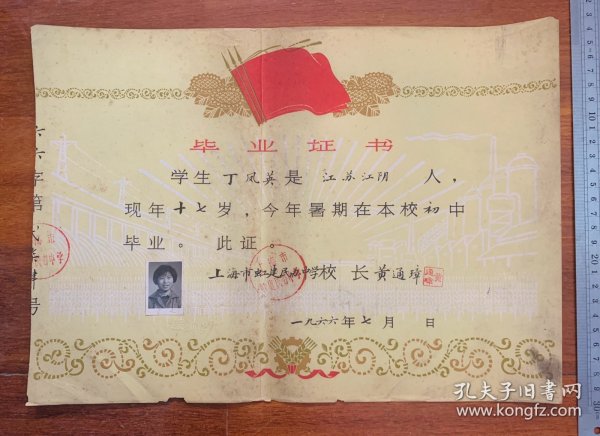 毕业证书
学生丁凤英是江苏江阴人，
现年十七岁，今年暑期在本校初中
毕业。此证。
上海市虹建民办中学校长黄通璋
一九六六年七月 日
六六字第
号
孔夫子旧书网
www.kongfz.com